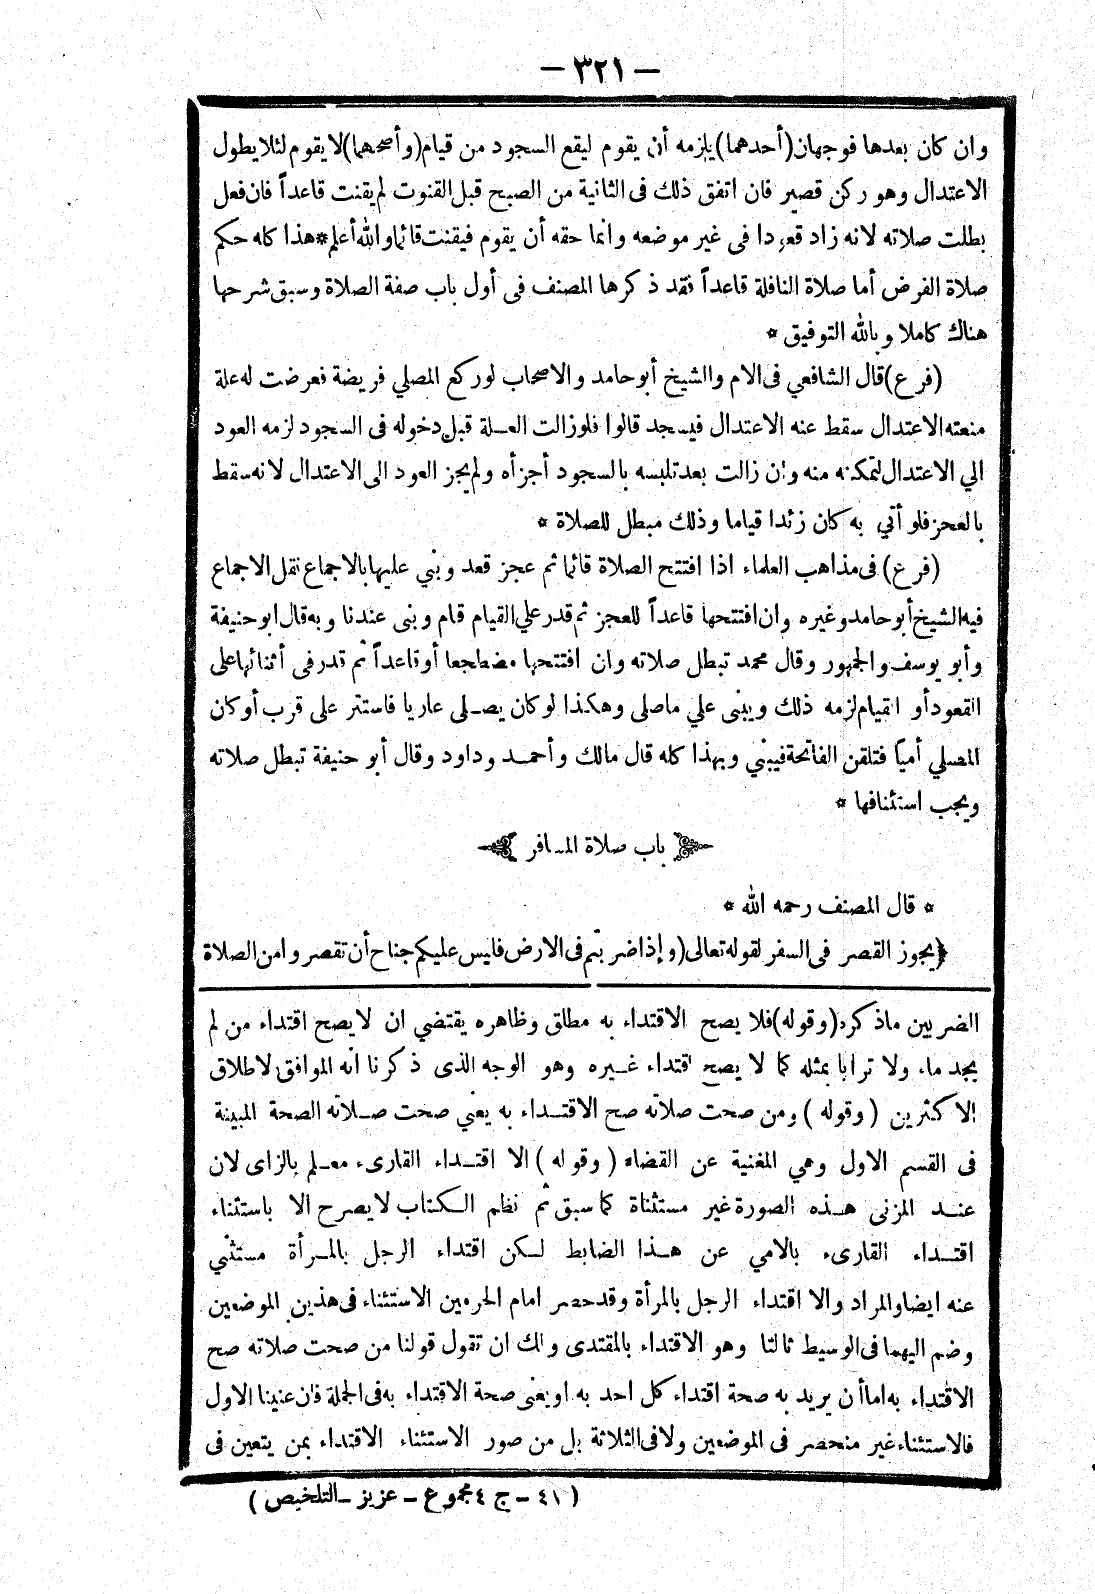 — ٣٢١ —
وان كان بعدها فوجهان (أحدهما) يلزمه أن يقوم ليقع السجود من قيام (وأصحهما) لا يقوم لئلا يطول
الاعتدال وهو ركن قصير فان اتفق ذلك فى الثانية من الصبح قبل القنوت لم يقنت قاعداً فان فعل
بطلت صلاته لانه زاد قعودا فى غير موضعه وانما حقه أن يقوم فيقنت قائما والله أعلم * هذا كله حكم
صلاة الفرض أما صلاة النافلة قاعداً فقد ذكرها المصنف فى أول باب صفة الصلاة وسبق شرحها
هناك كاملا وبالله التوفيق *
(فرع) قال الشافعي فى الام والشيخ أبو حامد والاصحاب لوركع المصلي فريضة فعرضت له علة
منعته الاعتدال سقط عنه الاعتدال فيسجد قالوا فلوزالت العلة قبل دخوله فى السجود لزمه العود
الي الاعتدال لتمكنه منه وان زالت بعد تلبسه بالسجود أجزأه ولم يجز العود الى الاعتدال لانه سقط
بالعجز فلو أتي به كان زئدا قياما وذلك مبطل للصلاة *
(فرع) فى مذاهب العلماء اذا افتتح الصلاة قائما ثم عجز قعد وبني عليها بالاجماع نقل الاجماع
فيه الشيخ أبو حامد وغيره وان افتتحها قاعداً للعجز ثم قدر علي القيام قام وبنى عندنا وبه قال ابو حنيفة
وأبو يوسف والجمهور وقال محمد تبطل صلاته وان افتتحها مضطجعا أو قاعداً ثم قدر فى أثنائها على
القعود أو القيام لزمه ذلك ويبنى علي ماصلى وهكذا لو كان يصلى عاريا فاستتر على قرب أو كان
المصلي أمياً فتلقن الفاتحة فيبني وبهذا كله قال مالك وأحمد وداود وقال أبو حنيفة تبطل صلاته
ويجب استئنافها *
باب صلاة المسافر
* قال المصنف رحمه الله *
﴿يجوز القصر فى السفر لقوله تعالى (وإذا ضربتم فى الارض فليس عليكم جناح أن تقصروا من الصلاة
الضربين ماذكره (وقوله) فلا يصح الاقتداء به مطلق وظاهره يقتضي ان لا يصح اقتداء من لم
يجد ماء ولا ترابا بمثله كما لا يصح اقتداء غيره وهو الوجه الذى ذكرنا انه الموافق لاطلاق
الاكثرين (وقوله) ومن صحت صلاته صح الاقتداء به يعني صحت صلاته الصحة المبينة
فى القسم الاول وهي المغنية عن القضاء (وقوله) الا اقتداء القارىء معلم بالزاى لان
عند المزنى هذه الصورة غير مستثناة كما سبق ثم نظم الكتاب لا يصرح الا باستثناء
اقتداء القارىء بالامي عن هذا الضابط لكن اقتداء الرجل بالمرأة مستثني
عنه ايضا والمراد والا اقتداء الرجل بالمرأة وقد حصر امام الحرمين الاستثناء فى هذين الموضعين
وضم اليهما فى الوسيط ثالثا وهو الاقتداء بالمقتدى ولك ان تقول قولنا من صحت صلاته صح
الاقتداء به اما أن يريد به صحة اقتداء كل احد به او يعنى صحة الاقتداء به فى الجملة فان عنينا الاول
فالاستثناء غير منحصر فى الموضعين ولا فى الثلاثة بل من صور الاستثناء الاقتداء بمن يتعين فى
(٤١ – ج ٤ مجموع – عزيز – التلخيص)